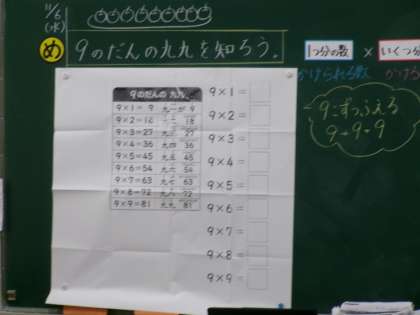 11/6
(水)
め
9のだんの九九を知ろう。
1つ分の数 × いくつ分
かけられる数 かけ
9こずつふえる
9+9+9
9のだんの九九
9×1=9 九一が 9
9×2=18 九二 18
9×3=27 九三 27
9×4=36 九四 36
9×5=45 九五 45
9×6=54 九六 54
9×7=63 九七 63
9×8=72 九八 72
9×9=81 九九 81
9×1=
9×2=
9×3=
9×4=
9×5=
9×6=
9×7=
9×8=
9×9=